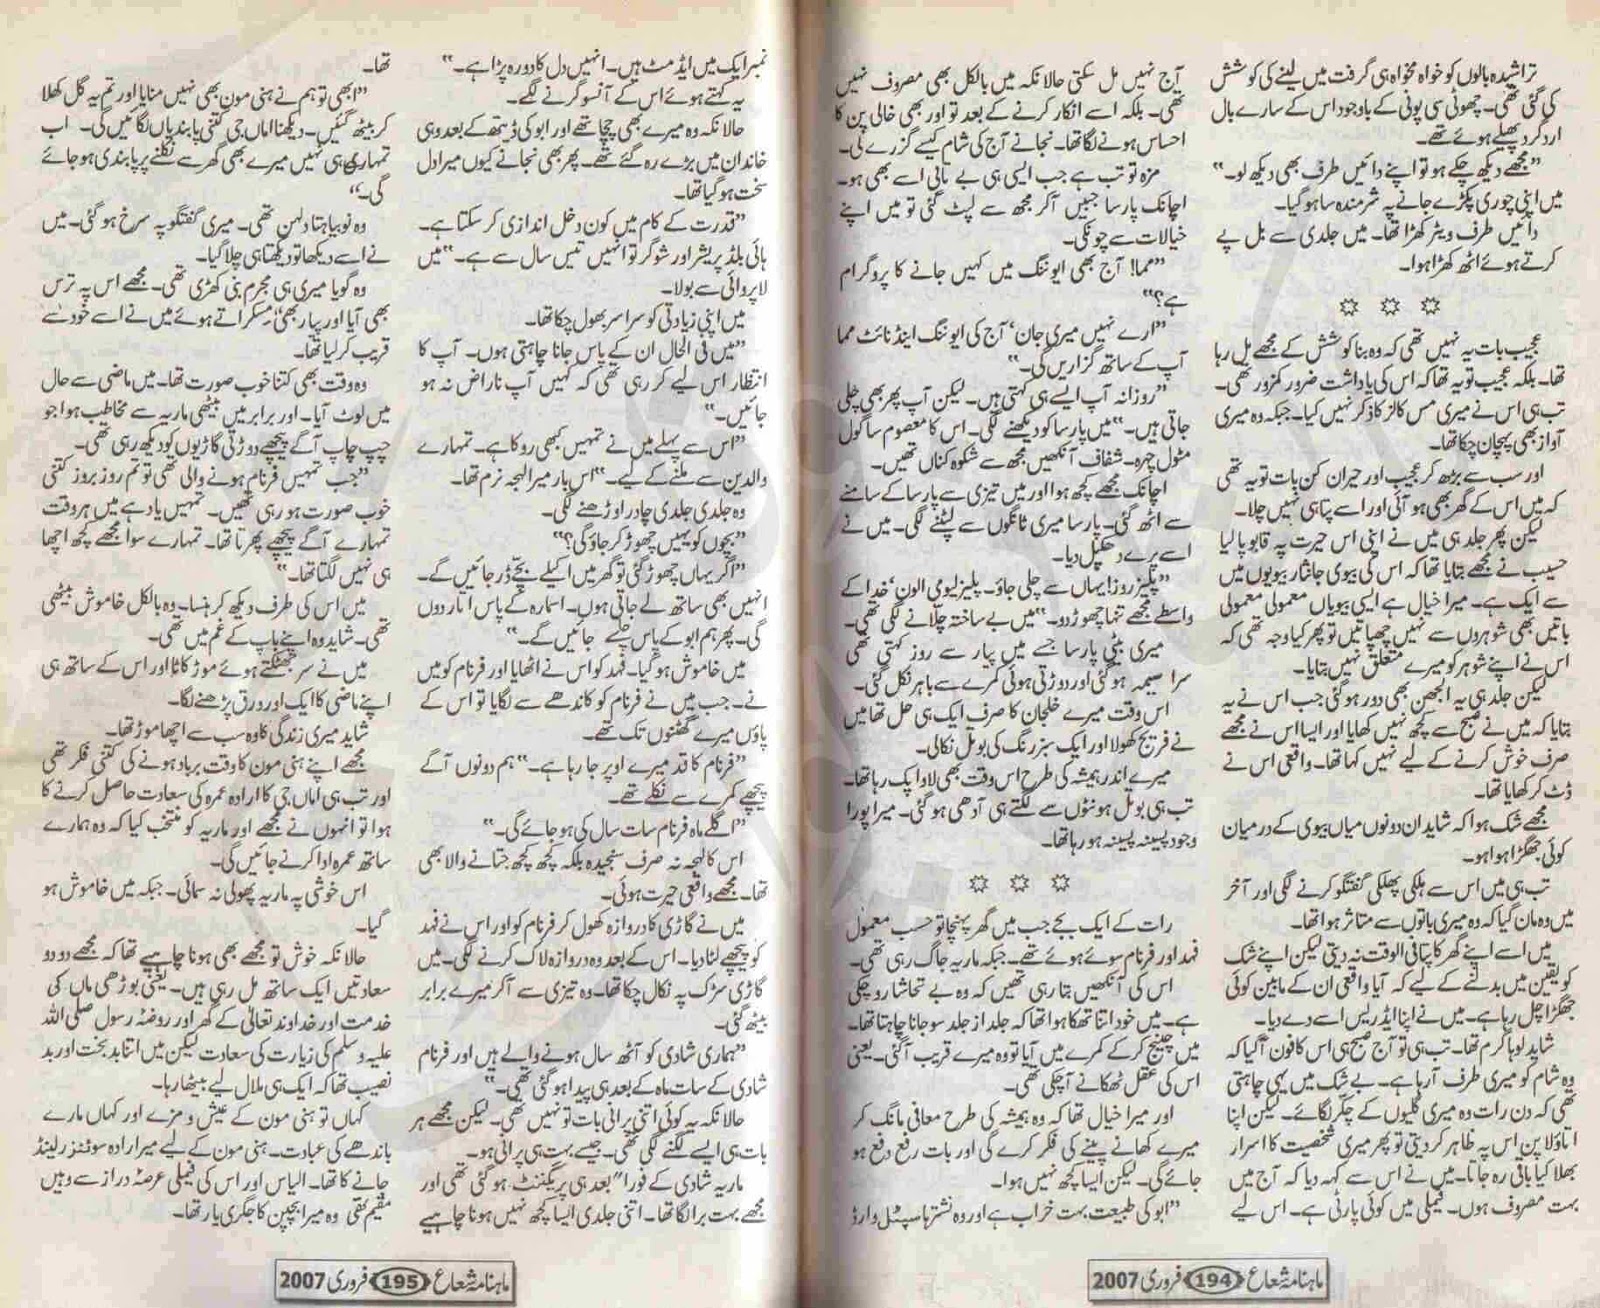 تراشیدہ بالوں کو خواہ مخواہ ہی گرفت میں لینے کی کوشش
کی گئی تھی۔ چھوٹی سی پونی کے باوجود اس کے سارے بال
اردگرد پھیلے ہوئے تھے۔
”مجھے دیکھ چکے ہو تو اپنے دائیں طرف بھی دیکھ لو۔“
میں اپنی چوری پکڑے جانے پہ شرمندہ سا ہو گیا۔
دائیں طرف ویٹر کھڑا تھا۔ میں جلدی سے بل پے
کرتے ہوئے اٹھ کھڑا ہوا۔
عجیب بات یہ نہیں تھی کہ وہ بنا کوشش کے مجھے مل رہا
تھا۔ بلکہ عجیب تو یہ تھا کہ اس کی یادداشت ضرور کمزور تھی۔
تب ہی اس نے میری مس کالز کا ذکر نہیں کیا۔ جبکہ وہ میری
آواز بھی پہچان چکا تھا۔
اور سب سے بڑھ کر عجیب اور حیران کن بات تو یہ تھی
کہ میں اس کے گھر بھی ہو آئی اور اسے پتا ہی نہیں چلا۔
لیکن پھر جلد ہی میں نے اپنی اس حیرت پہ قابو پا لیا
حسیب نے مجھے بتایا تھا کہ اس کی بیوی جانثار بیویوں میں
سے ایک ہے۔ میرا خیال ہے ایسی بیویاں معمولی معمولی
باتیں بھی شوہروں سے نہیں چھپاتیں تو پھر کیا وجہ تھی کہ
اس نے اپنے شوہر کو میرے متعلق نہیں بتایا۔
لیکن جلد ہی یہ الجھن بھی دور ہو گئی جب اس نے یہ
بتایا کہ میں نے صبح سے کچھ نہیں کھایا اور ایسا اس نے مجھے
صرف خوش کرنے کے لیے نہیں کہا تھا۔ واقعی اس نے
ڈٹ کر کھایا تھا۔
مجھے شک ہوا کہ شاید ان دونوں میاں بیوی کے درمیان
کوئی جھگڑا ہوا ہو۔
تب ہی میں اس سے ہلکی پھلکی گفتگو کرنے لگی اور آخر
میں وہ مان گیا کہ وہ میری باتوں سے متاثر ہوا تھا۔
میں اسے اپنے گھر کا پتا فی الوقت نہ دیتی لیکن اپنے شک
کو یقین میں بدلنے کے لیے کہ آیا واقعی ان کے مابین کوئی
جھگڑا چل رہا ہے۔ میں نے اپنا ایڈریس اسے دے دیا۔
شاید لوہا گرم تھا۔ تب ہی تو آج صبح ہی اس کا فون آ گیا کہ
وہ شام کو میری طرف آ رہا ہے۔ بے شک میں یہی چاہتی
تھی کہ دن رات وہ میری گلیوں کے چکر لگائے۔ لیکن اپنا
اتاؤلا پن اس پہ ظاہر کر دیتی تو پھر میری شخصیت کا اسرار
بھلا کیا باقی رہ جاتا۔ میں نے اس سے کہہ دیا کہ آج میں
بہت مصروف ہوں۔ فیملی میں کوئی پارٹی ہے۔ اس لیے
آج نہیں مل سکتی حالانکہ میں بالکل بھی مصروف نہیں
تھی۔ بلکہ اسے انکار کرنے کے بعد تو اور بھی خالی پن کا
احساس ہونے لگا تھا۔ نجانے آج کی شام کیسے گزرے گی۔
مزہ تو تب ہے جب ایسی ہی بے تابی اسے بھی ہو۔
اچانک پارسا جبیں آ کر مجھ سے لپٹ گئی تو میں اپنے
خیالات سے چونکی۔
”مما! آج بھی ایوننگ میں کہیں جانے کا پروگرام
ہے؟“
”ارے نہیں میری جان‘ آج کی ایوننگ اینڈ نائٹ مما
آپ کے ساتھ گزاریں گی۔“
”روزانہ آپ ایسے ہی کہتی ہیں۔ لیکن آپ پھر بھی چلی
جاتی ہیں۔“ میں پارسا کو دیکھنے لگی۔ اس کا معصوم سا گول
مٹول چہرہ۔ شفاف آنکھیں مجھ سے شکوہ کناں تھیں۔
اچانک مجھے کچھ ہوا اور میں تیزی سے پارسا کے سامنے
سے اٹھ گئی۔ پارسا میری ٹانگوں سے لپٹنے لگی۔ میں نے
اسے پرے دھکیل دیا۔
”پلیز روز! یہاں سے چلی جاؤ۔ پلیز لیو می الون‘ خدا کے
واسطے مجھے تنہا چھوڑ دو۔“ میں بے ساختہ چلّانے لگی تھی۔
میری بیٹی پارسا جسے میں پیار سے روز کہتی تھی
سراسیمہ ہو گئی اور دوڑتی ہوئی کمرے سے باہر نکل گئی۔
اس وقت میرے خلجان کا صرف ایک ہی حل تھا میں
نے فریج کھولا اور ایک سبز رنگ کی بوتل نکالی۔
میرے اندر ہمیشہ کی طرح اس وقت بھی لاوا پک رہا تھا۔
تب ہی بوتل ہونٹوں سے لگتے ہی آدھی ہو گئی۔ میرا پورا
وجود پسینہ پسینہ ہو رہا تھا۔
رات کے ایک بجے جب میں گھر پہنچا تو حسب معمول
فہد اور فرنام سوئے ہوئے تھے۔ جبکہ ماریہ جاگ رہی تھی۔
اس کی آنکھیں بتا رہی تھیں کہ وہ بے تحاشا رو چکی
ہے۔ میں خود اتنا تھکا ہوا تھا کہ جلد از جلد سو جانا چاہتا تھا۔
میں چینج کر کے کمرے میں آیا تو وہ میرے قریب آ گئی۔ یعنی
اس کی عقل ٹھکانے آ چکی تھی۔
اور میرا خیال تھا کہ وہ ہمیشہ کی طرح معافی مانگ کر
میرے کھانے پینے کی فکر کرے گی اور بات رفع دفع ہو
جائے گی۔ لیکن ایسا کچھ نہیں ہوا۔
”ابو کی طبیعت بہت خراب ہے اور وہ نشتر ہاسپٹل وارڈ
ماہنامہ شعاع 194 فروری 2007
نمبر ایک میں ایڈمٹ ہیں۔ انہیں دل کا دورہ پڑا ہے۔“
یہ کہتے ہوئے اس کے آنسو گرنے لگے۔
حالانکہ وہ میرے بھی چچا تھے اور ابو کی ڈیتھ کے بعد وہی
خاندان میں بڑے رہ گئے تھے۔ پھر بھی نجانے کیوں میرا دل
سخت ہو گیا تھا۔
”قدرت کے کام میں کون دخل اندازی کر سکتا ہے۔
ہائی بلڈ پریشر اور شوگر تو انہیں تیس سال سے ہے۔“ میں
لاپروائی سے بولا۔
میں اپنی زیادتی کو سراسر بھول چکا تھا۔
”میں فی الحال ان کے پاس جانا چاہتی ہوں۔ آپ کا
انتظار اس لیے کر رہی تھی کہ کہیں آپ ناراض نہ ہو
جائیں۔“
”اس سے پہلے میں نے تمہیں کبھی روکا ہے۔ تمہارے
والدین سے ملنے کے لیے۔“ اس بار میرا لہجہ نرم تھا۔
وہ جلدی جلدی چادر اوڑھنے لگی۔
”بچوں کو یہیں چھوڑ کر جاؤ گی؟“
”اگر یہاں چھوڑ گئی تو گھر میں اکیلے بچے ڈر جائیں گے۔
انہیں بھی ساتھ لے جاتی ہوں۔ اسمارہ کے پاس اتار دوں
گی۔ پھر ہم ابو کے پاس چلے جائیں گے۔“
میں خاموش ہو گیا۔ فہد کو اس نے اٹھایا اور فرنام کو میں
نے۔ جب میں نے فرنام کو کاندھے سے لگایا تو اس کے
پاؤں میرے گھٹنوں تک تھے۔
”فرنام کا قد میرے اوپر جا رہا ہے۔“ ہم دونوں آگے
پیچھے کمرے سے نکلے تھے۔
”اگلے ماہ فرنام سات سال کی ہو جائے گی۔“
اس کا لہجہ نہ صرف سنجیدہ بلکہ کچھ کچھ جتانے والا بھی
تھا۔ مجھے واقعی حیرت ہوئی۔
میں نے گاڑی کا دروازہ کھول کر فرنام کو اور اس نے فہد
کو پیچھے لٹا دیا۔ اس کے بعد وہ دروازہ لاک کرنے لگی۔ میں
گاڑی سڑک پہ نکال چکا تھا۔ وہ تیزی سے آ کر میرے برابر
بیٹھ گئی۔
”ہماری شادی کو آٹھ سال ہونے والے ہیں اور فرنام
شادی کے سات ماہ کے بعد ہی پیدا ہو گئی تھی۔“
حالانکہ یہ کوئی اتنی پرانی بات تو نہیں تھی۔ لیکن مجھے ہر
بات ہی ایسے لگنے لگی تھی۔ جیسے بہت ہی پرانی ہو۔
ماریہ شادی کے فوراً بعد ہی پریگننٹ ہو گئی تھی اور
مجھے بہت برا لگا تھا۔ اتنی جلدی ایسا کچھ نہیں ہونا چاہیے
تھا۔
”ابھی تو ہم نے ہنی مون بھی نہیں منایا اور تم یہ گل کھلا
کر بیٹھ گئیں۔ دیکھنا اماں جی کتنی پابندیاں لگائیں گی۔ اب
تمہاری ہی نہیں میرے بھی گھر سے نکلنے پر پابندی ہو جائے
گی۔“
وہ نو بیاہتا دلہن تھی۔ میری گفتگو پہ سرخ ہو گئی۔ میں
نے اسے دیکھا تو دیکھتا ہی چلا گیا۔
وہ گویا میری ہی مجرم بنی کھڑی تھی۔ مجھے اس پہ ترس
بھی آیا اور پیار بھی‘ مسکراتے ہوئے میں نے اسے خود سے
قریب کر لیا تھا۔
وہ وقت بھی کتنا خوب صورت تھا۔ میں ماضی سے حال
میں لوٹ آیا۔ اور برابر میں بیٹھی ماریہ سے مخاطب ہوا جو
چپ چاپ آگے پیچھے دوڑتی گاڑیوں کو دیکھ رہی تھی۔
”جب تمہیں فرنام ہونے والی تھی تو تم روز بروز کتنی
خوب صورت ہو رہی تھیں۔ تمہیں یاد ہے میں ہر وقت
تمہارے آگے پیچھے پھرتا تھا۔ تمہارے سوا مجھے کچھ اچھا
ہی نہیں لگتا تھا۔“
میں اس کی طرف دیکھ کر ہنسا۔ وہ بالکل خاموش بیٹھی
تھی۔ شاید وہ اپنے باپ کے غم میں تھی۔
میں نے سر جھٹکتے ہوئے موڑ کاٹا اور اس کے ساتھ ہی
اپنے ماضی کا ایک اور ورق پڑھنے لگا۔
شاید میری زندگی کا وہ سب سے اچھا موڑ تھا۔
مجھے اپنے ہنی مون کا وقت برباد ہونے کی کتنی فکر تھی
اور تب ہی اماں جی کا ارادہ عمرہ کی سعادت حاصل کرنے کا
ہوا تو انہوں نے مجھے اور ماریہ کو منتخب کیا کہ وہ ہمارے
ساتھ عمرہ ادا کرنے جائیں گی۔
اس خوشی پہ ماریہ پھولی نہ سمائی۔ جبکہ میں خاموش ہو
گیا۔
حالانکہ خوش تو مجھے بھی ہونا چاہیے تھا کہ مجھے دو دو
سعادتیں ایک ساتھ مل رہی ہیں۔ یعنی بوڑھی ماں کی
خدمت اور خداوند تعالیٰ کے گھر اور روضۂ رسول صلی اللہ
علیہ وسلم کی زیارت کی سعادت لیکن میں اتنا بد بخت اور بد
نصیب تھا کہ ایک ہی ملال لیے بیٹھا رہا۔
کہاں تو ہنی مون کے عیش و مزے اور کہاں مارے
باندھے کی عبادت۔ ہنی مون کے لیے میرا ارادہ سوئٹزر لینڈ
جانے کا تھا۔ الیاس اور اس کی فیملی عرصۂ دراز سے وہیں
مقیم تھی وہ میرا بچپن کا جگری یار تھا۔
ماہنامہ شعاع 195 فروری 2007